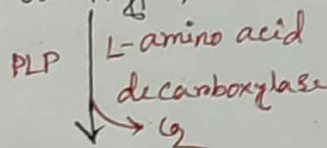 PLP
L-amino acid
decarboxylase
CO2